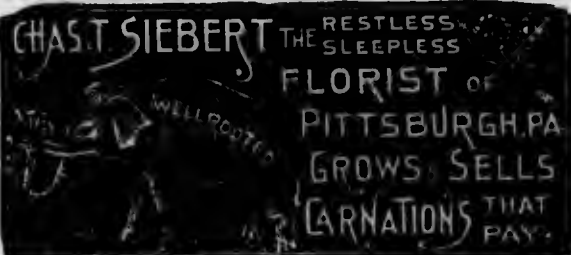 CHAS. T. SIEBERT THE RESTLESS
SLEEPLESS
FLORIST OF
PITTSBURGH. PA
GROWS SELLS
CARNATIONS THAT
PAY.
WELL ROOTED